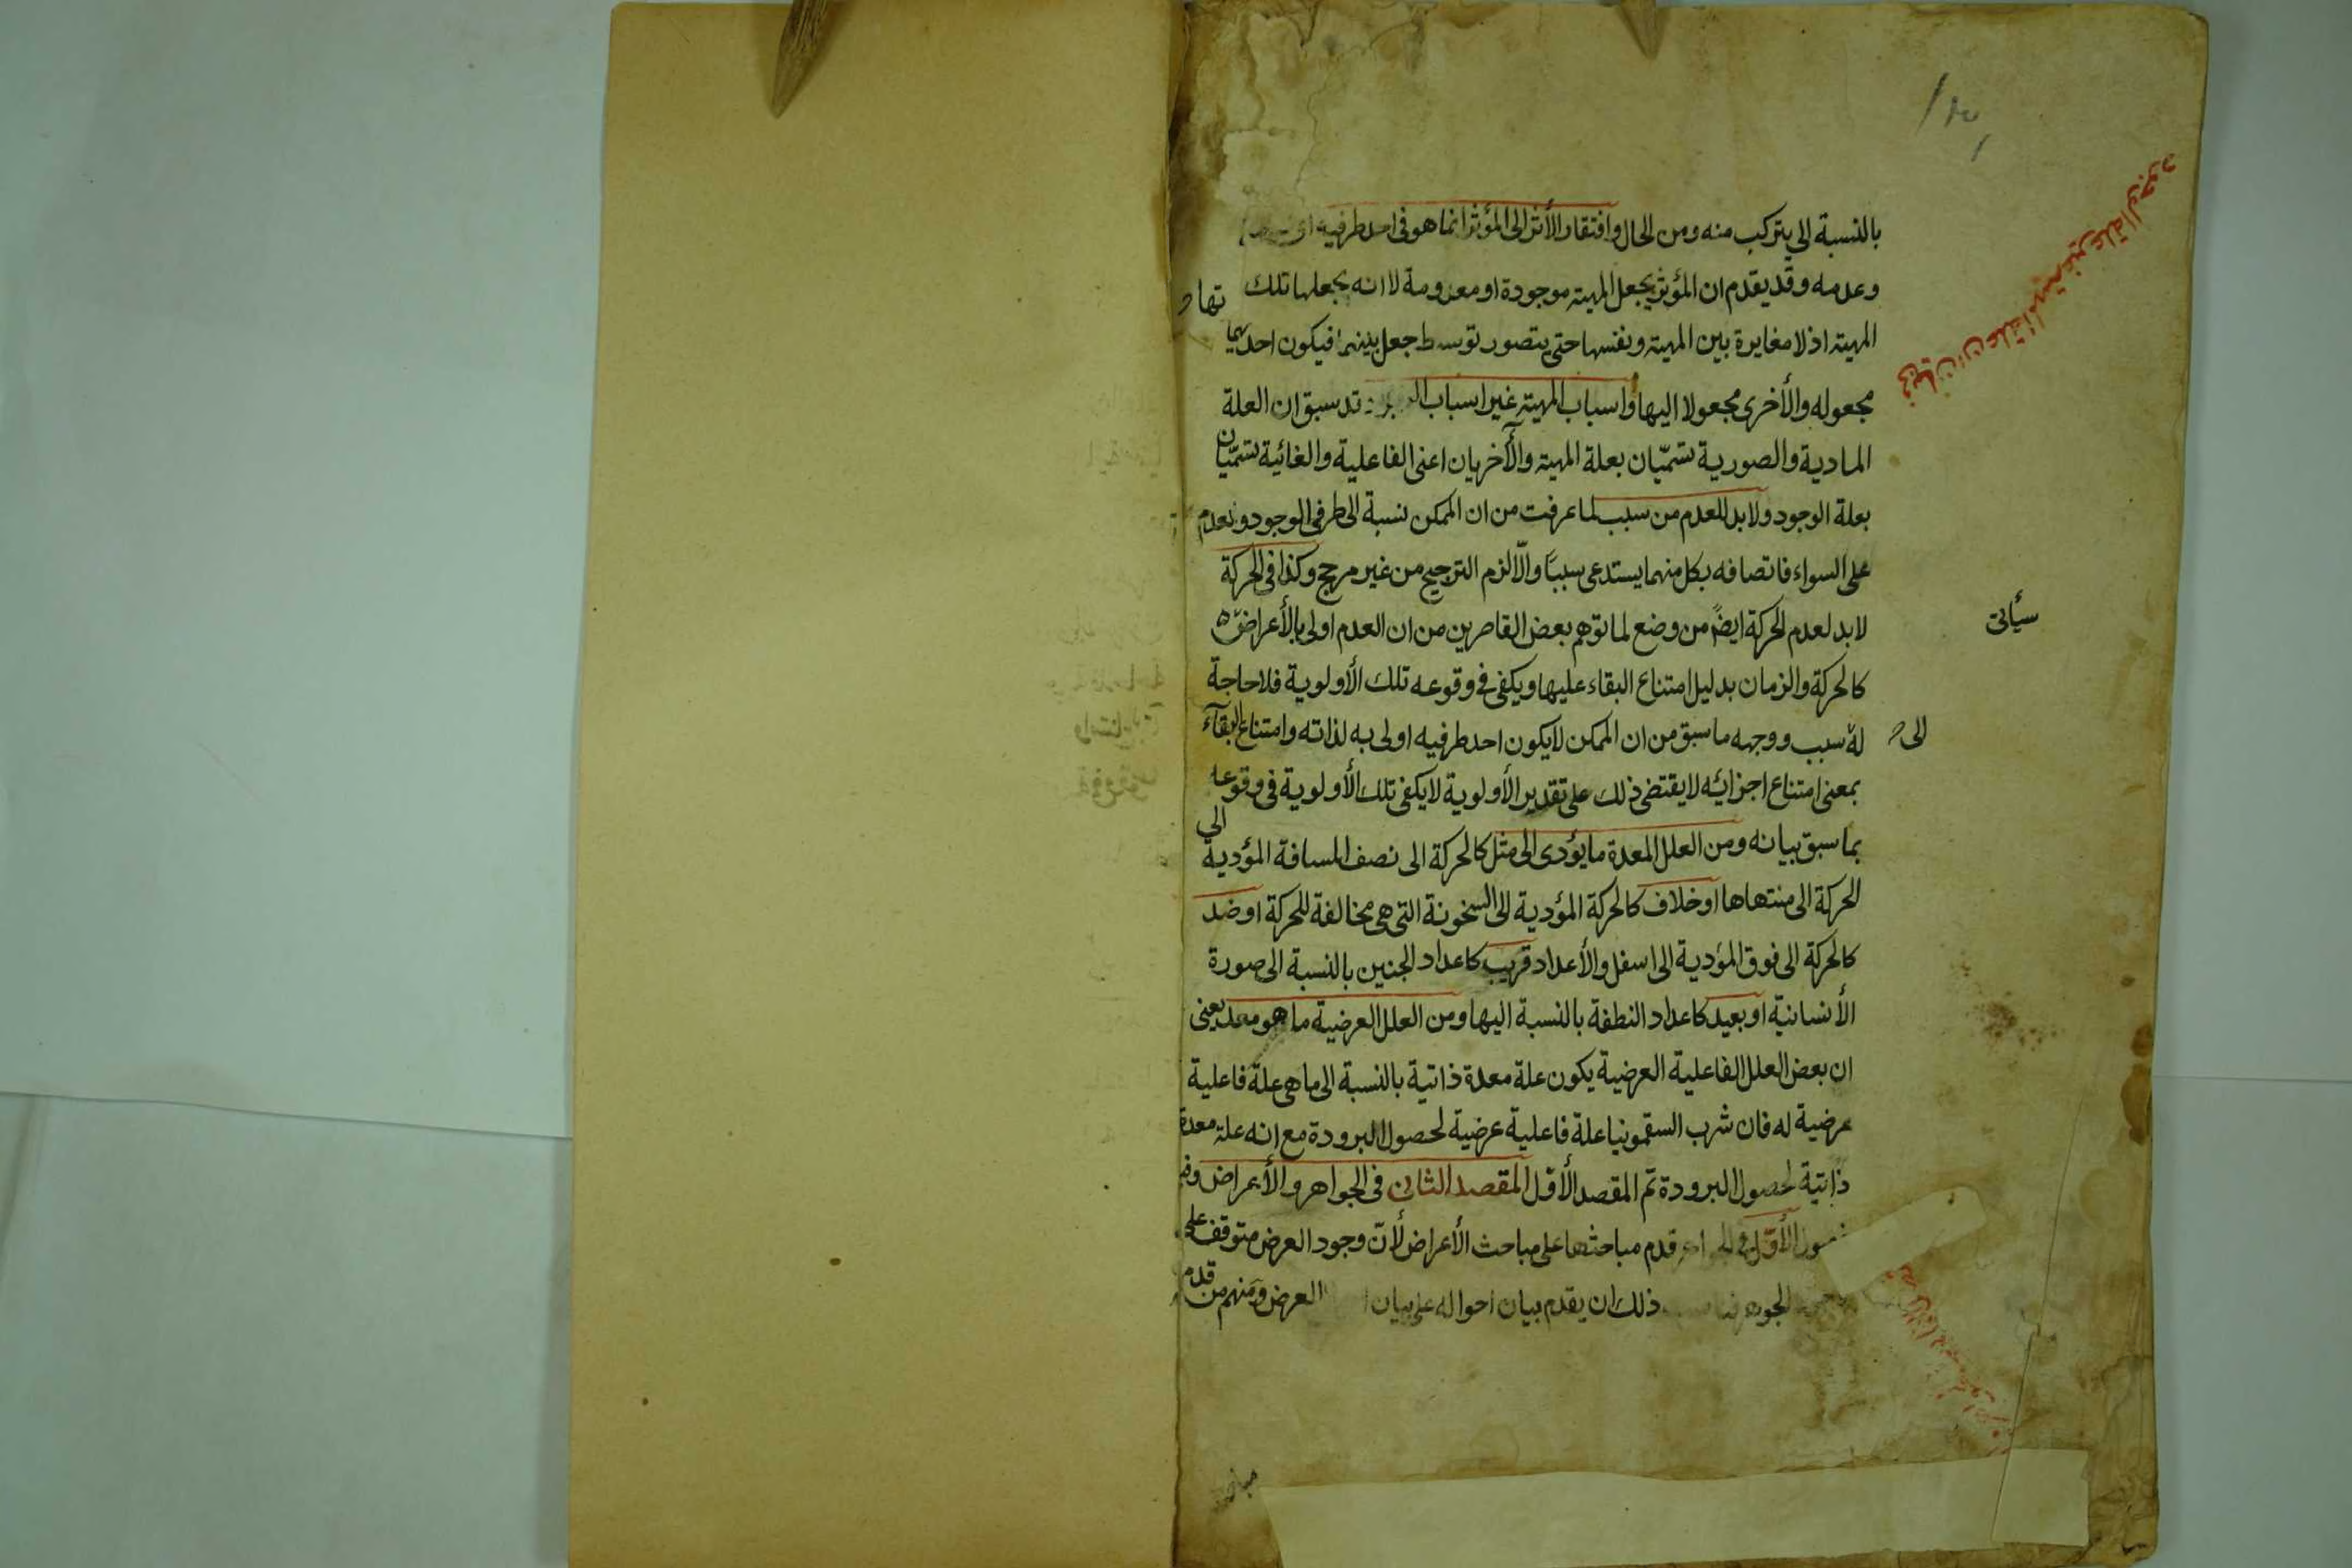 بالنسبة الى يتركب منه ومن الحال وافتقار الأثر الى المؤثر انما هو فى احد طرفيه
وعدمه وقد يقدم ان المؤثر يجعل المهية موجودة او معدومة لا انه يجعلها تلك
المهية اذ لا مغايرة بين المهية ونفسها حتى يتصور توسط جعل بينهما فيكون احديهما
مجعوله والأخرى مجعولا اليها واسباب المهية غير اسباب سبق ان العلة
المادية والصورية تسمّيان بعلة المهية والأخريان اعنى الفاعلية والغائية تسمّيان
بعلة الوجود ولابد للعدم من سبب لما عرفت من ان الممكن نسبة الى طرفى الوجود و
على السواء فاتصافه بكل منهما يستدعى سببًا والّا لزم الترجيح من غير مرجح وكذا فى الحركة
لابد لعدم الحركة ايضًا من وضع لما توهم بعض القاصرين من ان العدم اولى بالأعراض
سيأتى
كالحركة والزمان بدليل امتناع البقاء عليها ويكفى فى وقوعه تلك الأولوية فلا حاجة
له سبب ووجهه ما سبق من ان الممكن لا يكون احد طرفيه اولى به لذاته وامتناع البقآء
الى
بمعنى امتناع اجزائه لا يقتضى ذلك على تقدير الأولوية لا يكفى تلك الأولوية فى وقوعه
بما سبق بيانه ومن العلل المعدة ما يؤدى الى مثل كالحركة الى نصف المسافة المؤدية الى
الحركة الى منتهاها او خلاف كالحركة المؤدية الى السخونة التى هى مخالفة للحركة او ضد
كالحركة الى فوق المؤدية الى اسفل والأعداد قريب كاعداد الجنين بالنسبة الى صورة
الأنسانية او بعيد كاعداد النطفة بالنسبة اليها ومن العلل العرضية ما هو معد يعنى
ان بعض العلل الفاعلية العرضية يكون علة معدة ذاتية بالنسبة الى ما هى علة فاعلية
عرضية له فان شرب السقمونيا علة فاعلية عرضية لحصول البرودة مع انه علة معدة
ذاتية لحصول البرودة تم المقصد الأوّل المقصد الثانى فى الجواهر والأعراض
الأوّل فى قدم مباحثها على مباحث الأعراض لأنّ وجود العرض متوقف على
ذلك ان يقدم بيان احواله على بيان العرض ومنهم من قدم